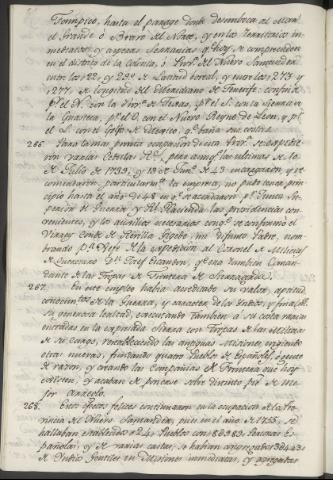 Tampico, hasta el parage donde desemboca el
Grande ó Bravo del Norte, y en los territorios in-
mediatos, y asperas Serranias q.e hoy se comprenden
en el distrito de la Colonia, ó Prov.a del Nuevo Santander
entre los 22, y 29.o de Latitud boreal, y entre los 273 y
277. de longitud del Meridiano de Tenerife: confina
p.r el N. con la Prov.a de Texas, p.r el S. con la
la Guasteca, p.r el O. con el Nuevo Reyno de Leon, y p.r
el E. con el Golfo de Mexico, q.e baña sus costas.
266. Para la mas pronta ocupacion de esta Prov.a se expidie-
ron varias Cedulas R.s, pero aunq.e las ultimas de 10
de Julio de 1739, y 13 de Jun.o de 43 encargaron, y re-
comendaron particularm.te la empresa, no pudo tener prin-
cipio hasta el año de 48 en q.e se acordaron p.r Junta
de Guerra, y R.l Hacienda las providencias con-
venientes, y los auxilios necesarios conq.e se conformó el
Virrey Conde de Revilla Gigedo mi difunto Padre, nom-
brando p.a Gefe de la expedicion al Coronel de Milicias
de Queretaro D.n Josef Escandon, q.e era tambien Coman-
dante de las Tropas de Frontera de Sierragorda.
267. En este empleo habia acreditado su valor, aptitud
conocim.tos de la Guerra, y caracter de los Indios, y
su generosa lealtad, executando tambien á su costa varias
entradas en la expresada Sierra con Tropas de las Milicias
de su cargo, restableciendo las antiguas Misiones, erigiendo
otras nuevas, fundando quatro Pueblos de Españoles, ó gente
de razon, y creando las Compañias de Frontera que hoy
existen, y acaban de ponerse sobre distinto pie de me-
jor arreglo.
268. Estos efectos felices continuaron en la ocupacion de la Pro-
vincia del Nuevo Santander, pues en el año de 1755, se
hallaban establecidos 24 Pueblos con 8383. Personas Es-
pañolas, y de varias castas, se habian congregado 3443
de Indios Gentiles en Misiones inmediatas, y agregadas